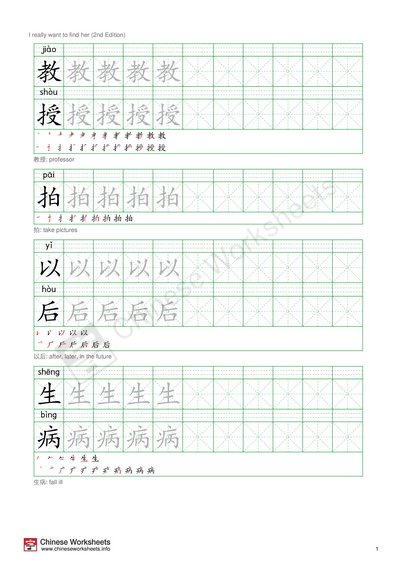 I really want to find her (2nd Edition)
jiào
教 教 教 教 教
shòu
授 授 授 授 授
教授: professor
pāi
拍 拍 拍 拍 拍
拍: take pictures
yǐ
以 以 以 以 以
hòu
后 后 后 后 后
以后: after, later, in the future
shēng
生 生 生 生 生
bìng
病 病 病 病 病
生病: fall ill
Chinese Worksheets
Chinese Worksheets
www.chineseworksheets.info
1